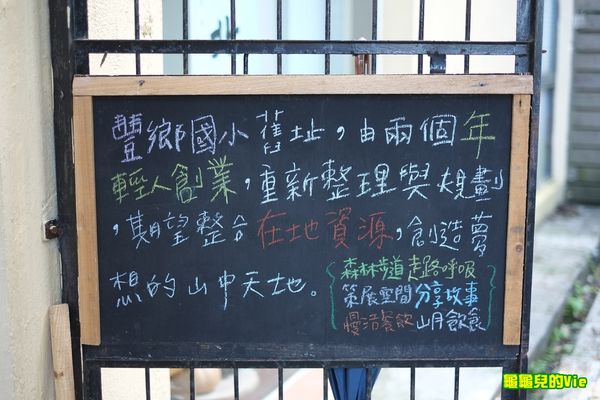 豐鄉國小舊址，由兩個年
輕人創業，重新整理與規劃
，期望整合在地資源，創造夢
想的山中天地。
森林步道 走路呼吸
策展空間 分享故事
慢活餐飲 山月飲食
龜龜兒的Vie